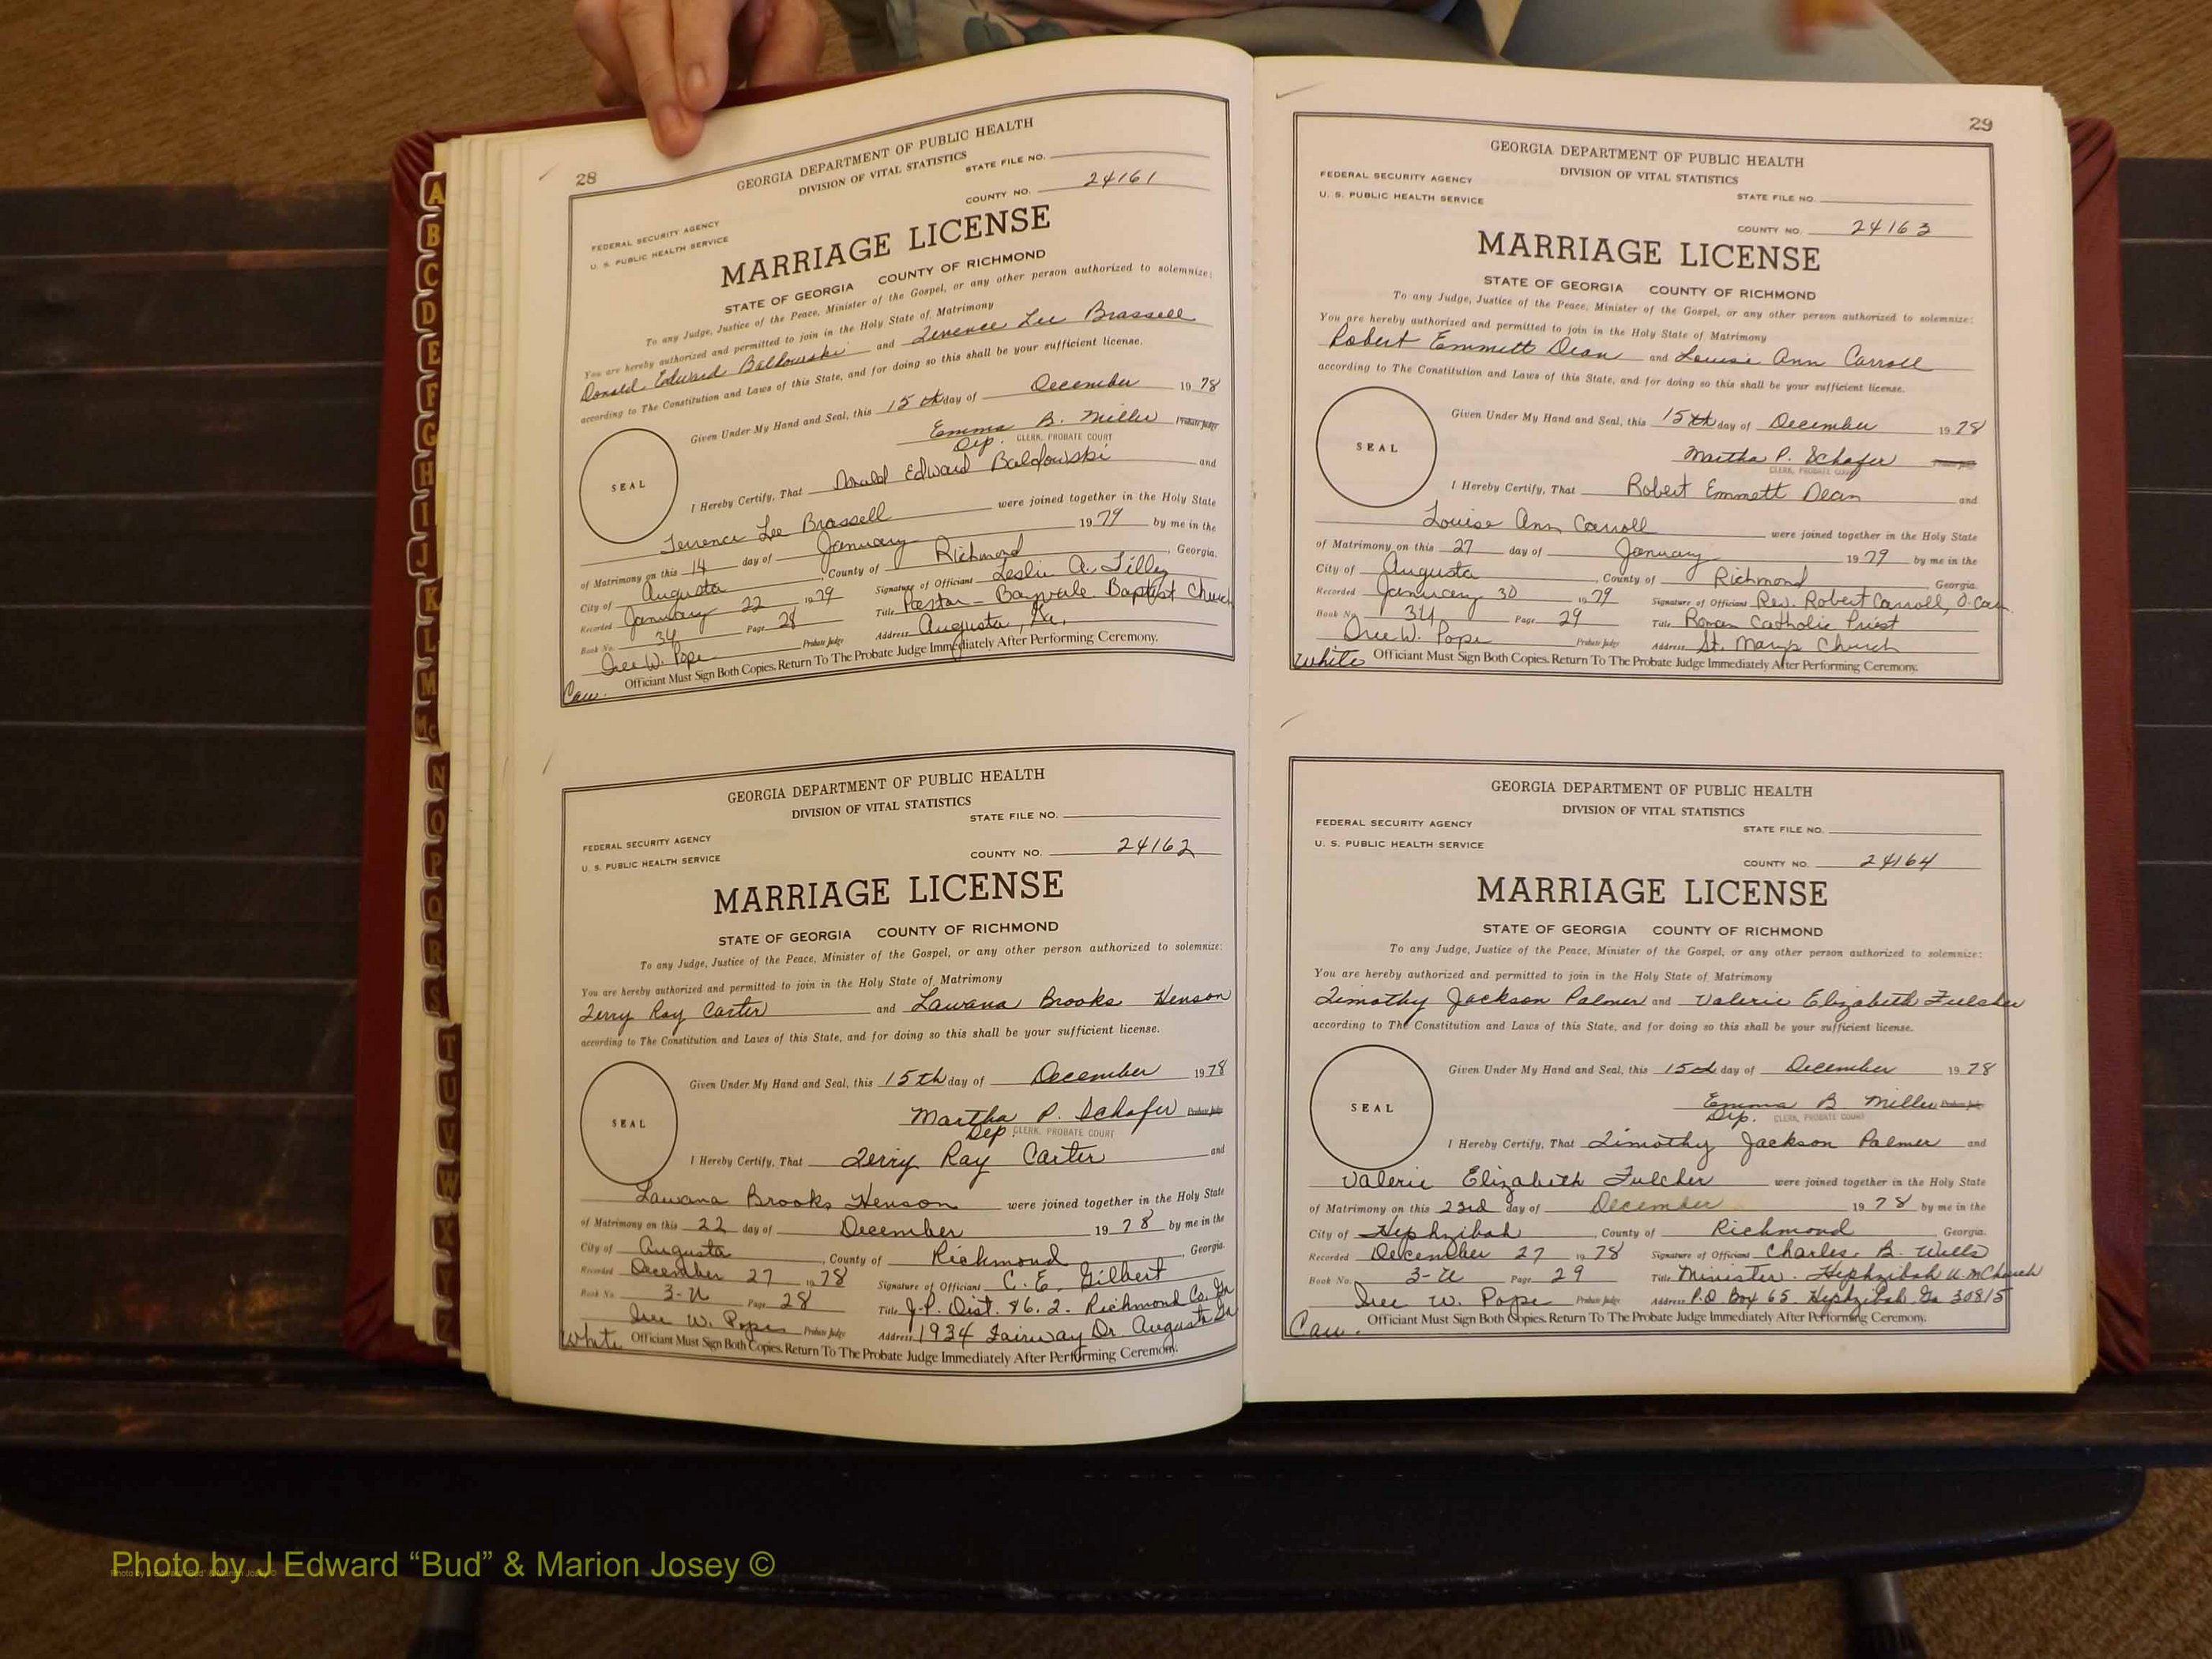 28
GEORGIA DEPARTMENT OF PUBLIC HEALTH
DIVISION OF VITAL STATISTICS
STATE FILE NO.
COUNTY NO. 24161
FEDERAL SECURITY AGENCY
U. S. PUBLIC HEALTH SERVICE
MARRIAGE LICENSE
STATE OF GEORGIA COUNTY OF RICHMOND
To any Judge, Justice of the Peace, Minister of the Gospel, or any other person authorized to solemnize:
You are hereby authorized and permitted to join in the Holy State of Matrimony
Donald Edward Baldowski and Terrence Lee Brassell
according to The Constitution and Laws of this State, and for doing so this shall be your sufficient license.
Given Under My Hand and Seal, this 15th day of December 1978
Emma B. Miller Probate Judge
Dep. CLERK, PROBATE COURT
SEAL
I Hereby Certify, That Donald Edward Baldowski and
Terrence Lee Brassell were joined together in the Holy State
of Matrimony on this 14 day of January 1979 by me in the
City of Augusta, County of Richmond, Georgia.
Recorded January 22 1979 Signature of Officiant Leslie A. Tilley
Book No. 34 Page 28 Title Pastor - Bayvale Baptist Church
W. Pope Probate Judge Address Augusta, Ga.
Cau. Officiant Must Sign Both Copies. Return To The Probate Judge Immediately After Performing Ceremony.
GEORGIA DEPARTMENT OF PUBLIC HEALTH
DIVISION OF VITAL STATISTICS
STATE FILE NO.
FEDERAL SECURITY AGENCY
U. S. PUBLIC HEALTH SERVICE
COUNTY NO. 24162
MARRIAGE LICENSE
STATE OF GEORGIA COUNTY OF RICHMOND
To any Judge, Justice of the Peace, Minister of the Gospel, or any other person authorized to solemnize:
You are hereby authorized and permitted to join in the Holy State of Matrimony
Terry Ray Carter and Lawana Brooks Henson
according to The Constitution and Laws of this State, and for doing so this shall be your sufficient license.
Given Under My Hand and Seal, this 15th day of December 1978
Martha P. Schafer Probate Judge
Dep. CLERK, PROBATE COURT
SEAL
I Hereby Certify, That Terry Ray Carter and
Lawana Brooks Henson were joined together in the Holy State
of Matrimony on this 22 day of December 1978 by me in the
City of Augusta, County of Richmond, Georgia.
Recorded December 27 1978 Signature of Officiant C. E. Gilbert
Book No. 3-U Page 28 Title J.P. Dist. 86.2. Richmond Co. Ga
W. Pope Probate Judge Address 1934 Fairway Dr. Augusta Ga
White Officiant Must Sign Both Copies. Return To The Probate Judge Immediately After Performing Ceremony.
29
GEORGIA DEPARTMENT OF PUBLIC HEALTH
DIVISION OF VITAL STATISTICS
FEDERAL SECURITY AGENCY
U. S. PUBLIC HEALTH SERVICE
STATE FILE NO.
COUNTY NO. 24163
MARRIAGE LICENSE
STATE OF GEORGIA COUNTY OF RICHMOND
To any Judge, Justice of the Peace, Minister of the Gospel, or any other person authorized to solemnize:
You are hereby authorized and permitted to join in the Holy State of Matrimony
Robert Emmett Dean and Louise Ann Carroll
according to the Constitution and Laws of this State, and for doing so this shall be your sufficient license.
Given Under My Hand and Seal, this 15th day of December 1978
Martha P. Schafer
CLERK, PROBATE COURT
SEAL
I Hereby Certify, That Robert Emmett Dean and
Louise Ann Carroll were joined together in the Holy State
of Matrimony on this 27 day of January 1979 by me in the
City of Augusta, County of Richmond, Georgia.
Recorded January 30 1979 Signature of Officiant Rev. Robert Carroll, O.Carm.
Book No. 34 Page 29 Title Roman Catholic Priest
W. Pope Probate Judge Address St. Marys Church
White Officiant Must Sign Both Copies. Return To The Probate Judge Immediately After Performing Ceremony.
GEORGIA DEPARTMENT OF PUBLIC HEALTH
DIVISION OF VITAL STATISTICS
FEDERAL SECURITY AGENCY
U. S. PUBLIC HEALTH SERVICE
STATE FILE NO.
COUNTY NO. 24164
MARRIAGE LICENSE
STATE OF GEORGIA COUNTY OF RICHMOND
To any Judge, Justice of the Peace, Minister of the Gospel, or any other person authorized to solemnize:
You are hereby authorized and permitted to join in the Holy State of Matrimony
Timothy Jackson Palmer and Valerie Elizabeth Fulcher
according to The Constitution and Laws of this State, and for doing so this shall be your sufficient license.
Given Under My Hand and Seal, this 15th day of December 1978
Emma B Miller Probate Judge
Dep. CLERK, PROBATE COURT
SEAL
I Hereby Certify, That Timothy Jackson Palmer and
Valerie Elizabeth Fulcher were joined together in the Holy State
of Matrimony on this 23rd day of December 1978 by me in the
City of Hephzibah, County of Richmond, Georgia.
Recorded December 27 1978 Signature of Officiant Charles B. Wills
Book No. 3-U Page 29 Title Minister. Hephzibah U.M Church
W. Pope Probate Judge Address P.O Box 65. Hephzibah Ga 30815
Cau. Officiant Must Sign Both Copies. Return To The Probate Judge Immediately After Performing Ceremony.
A
B
C
D
E
F
G
H
I
J
K
L
M
Mc
N
O
P
Q
R
S
T
U
V
W
X
Y
Z
Photo by J Edward “Bud” & Marion Josey ©